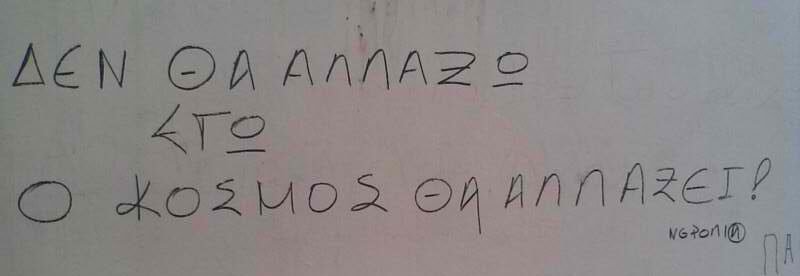 ΔΕΝ ΘΑ ΑΛΛΑΞΩ
ΕΓΩ
Ο ΚΟΣΜΟΣ ΘΑ ΑΛΛΑΞΕΙ!
ΠΑ